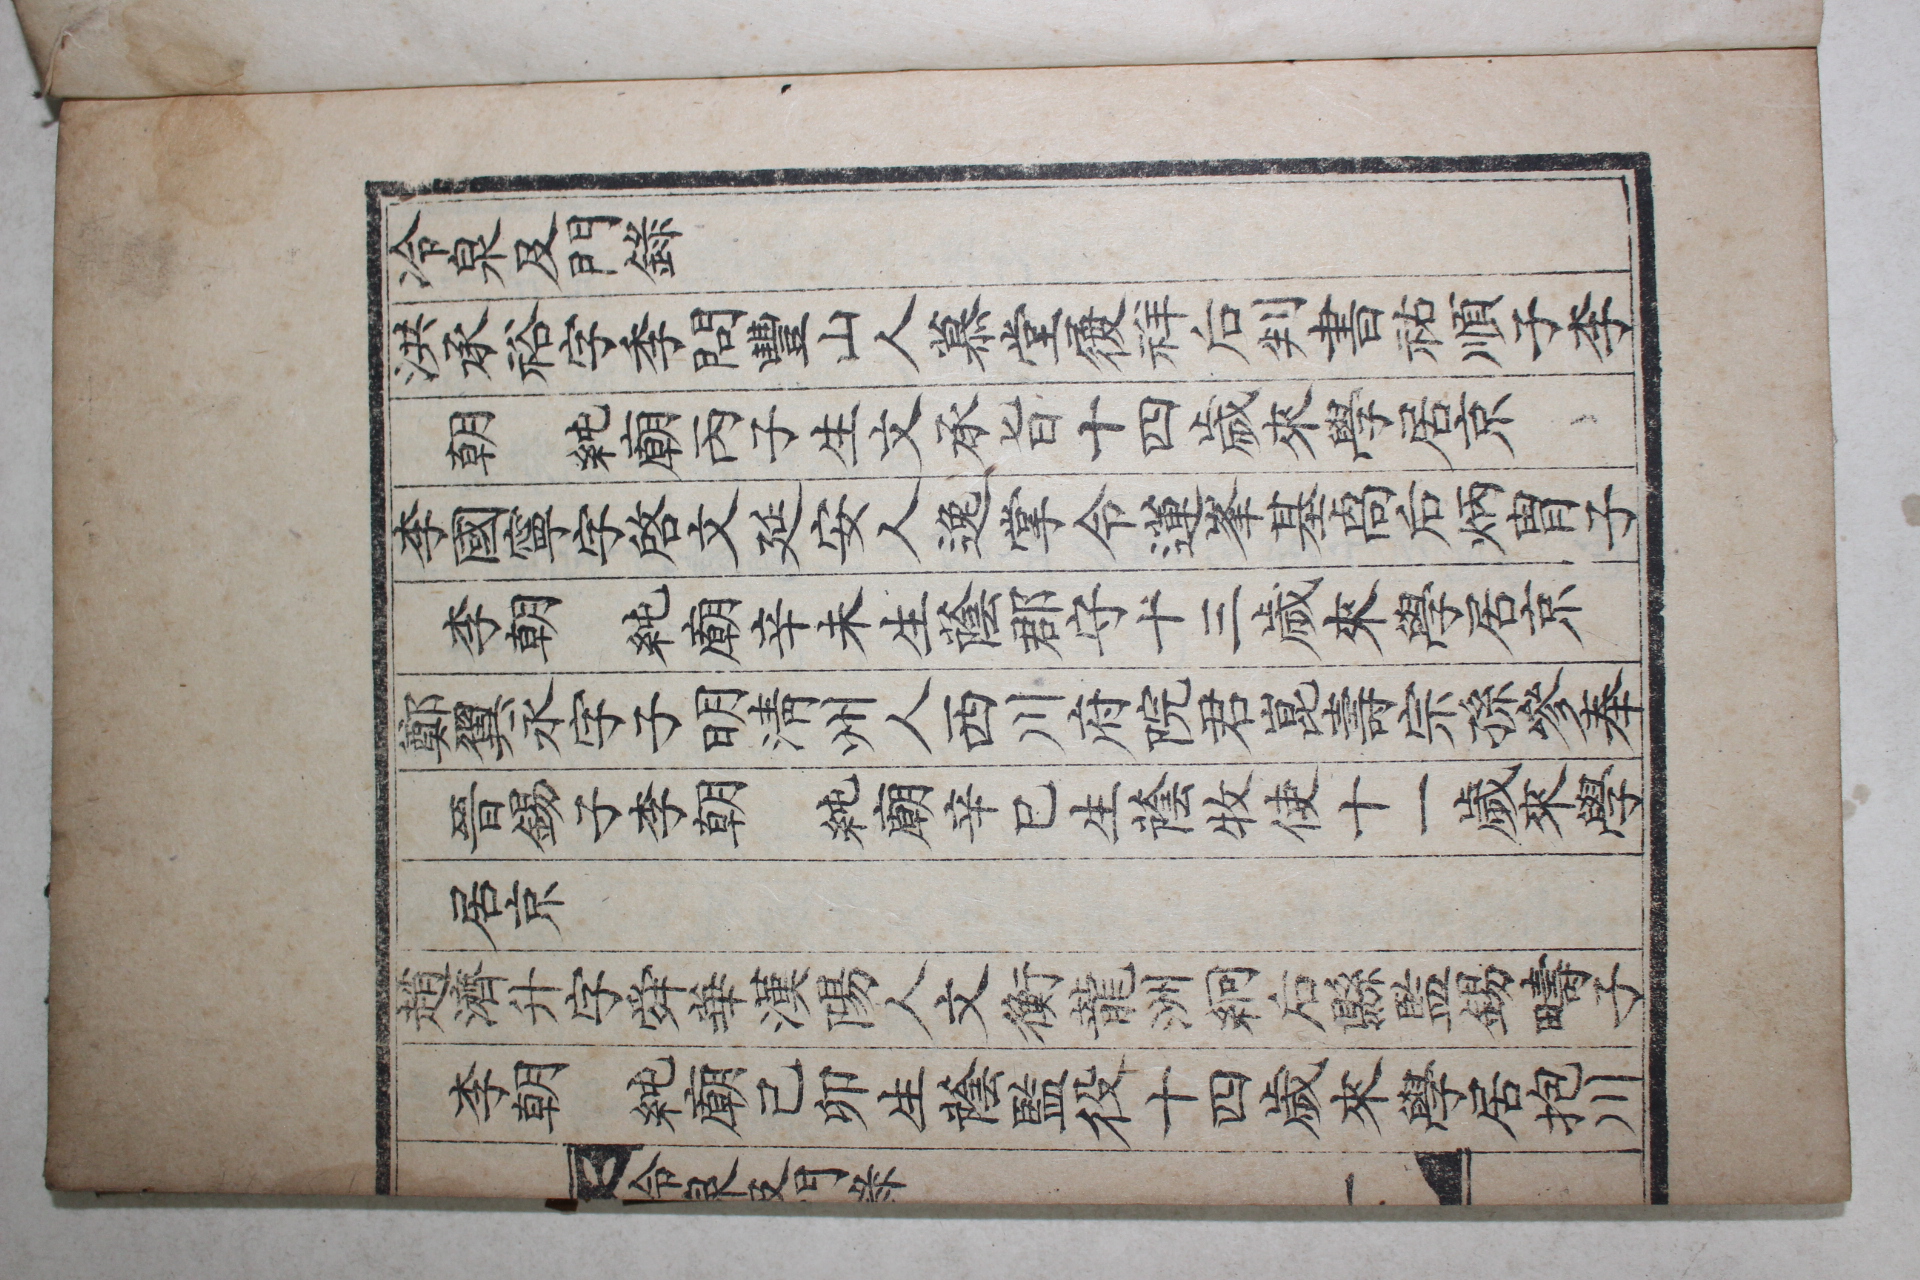 冷泉及門錄
洪承裕字季問豐山人慕堂履祥后判書祐順子李
朝 純廟丙子生文承旨十四歲來學居京
李國寧字啓文延安人逸掌令蓮峯基卨后炳冑子
李朝 純廟辛未生蔭郡守十三歲來學居京
鄭翼永字子明淸州人西川府院君崑壽宗孫參奉
晉錫子李朝 純廟辛巳生蔭牧使十一歲來學
居京
趙濟升字舜華漢陽人文衡龍洲絅后縣監錫疇子
李朝 純廟己卯生蔭監役十四歲來學居抱川
冷泉及門錄 一